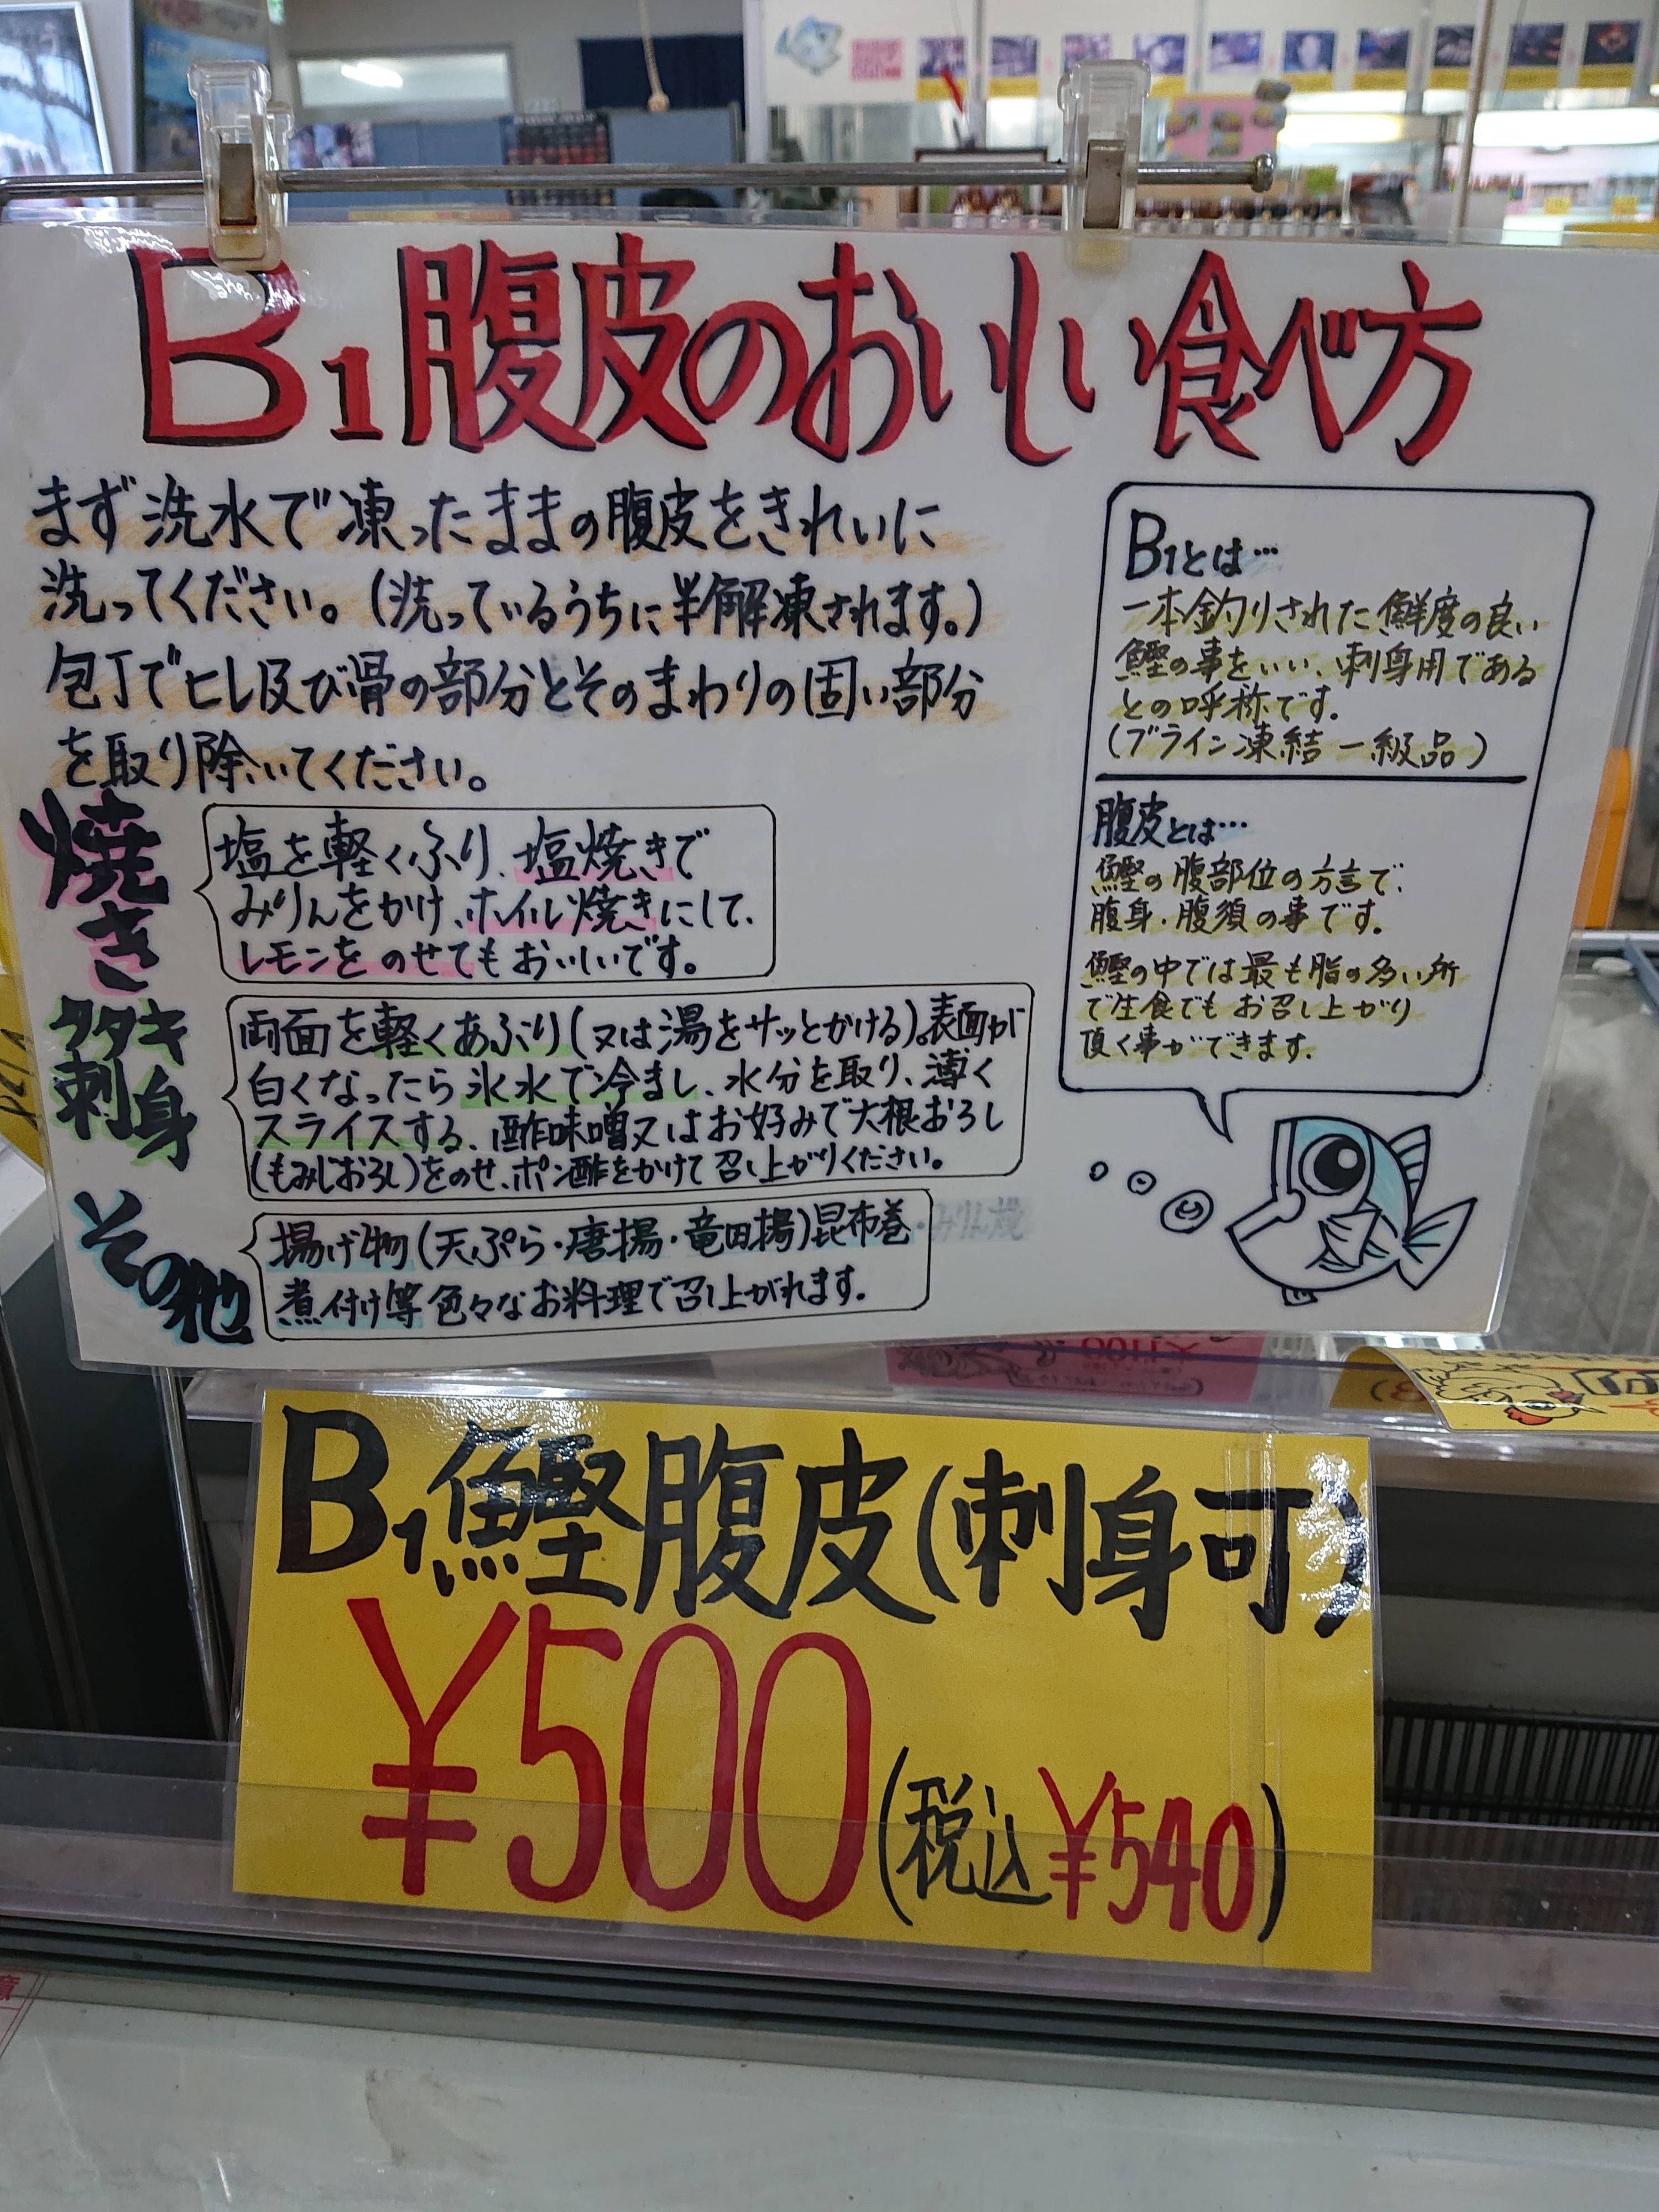 B1腹皮のおいしい食べ方
まず洗水で凍ったままの腹皮をきれいに
洗ってください。(洗っているうちに半解凍されます。)
包丁でヒレ及び骨の部分とそのまわりの固い部分
を取り除いてください。
焼き
塩を軽くふり、塩焼きで
みりんをかけ、ホイル焼きにして、
レモンをのせてもおいしいです。
タタキ
刺身
両面を軽くあぶり(又は湯をサッとかける)。表面が
白くなったら氷水で冷まし、水分を取り、薄く
スライスする。酢味噌又はお好みで大根おろし
(もみじおろし)をのせ、ポン酢をかけて召し上がりください。
その他
揚げ物(天ぷら・唐揚・竜田揚)昆布巻
煮付け等色々なお料理で召し上がれます。
B1とは…
一本釣りされた鮮度の良い
鰹の事をいい、刺身用である
との呼称です。
(ブライン凍結一級品)
腹皮とは…
鰹の腹部位の方言で、
腹身・腹須の事です。
鰹の中では最も脂の多い所
で生食でもお召し上がり
頂く事ができます。
B1鰹腹皮(刺身可)
¥500(税込¥540)